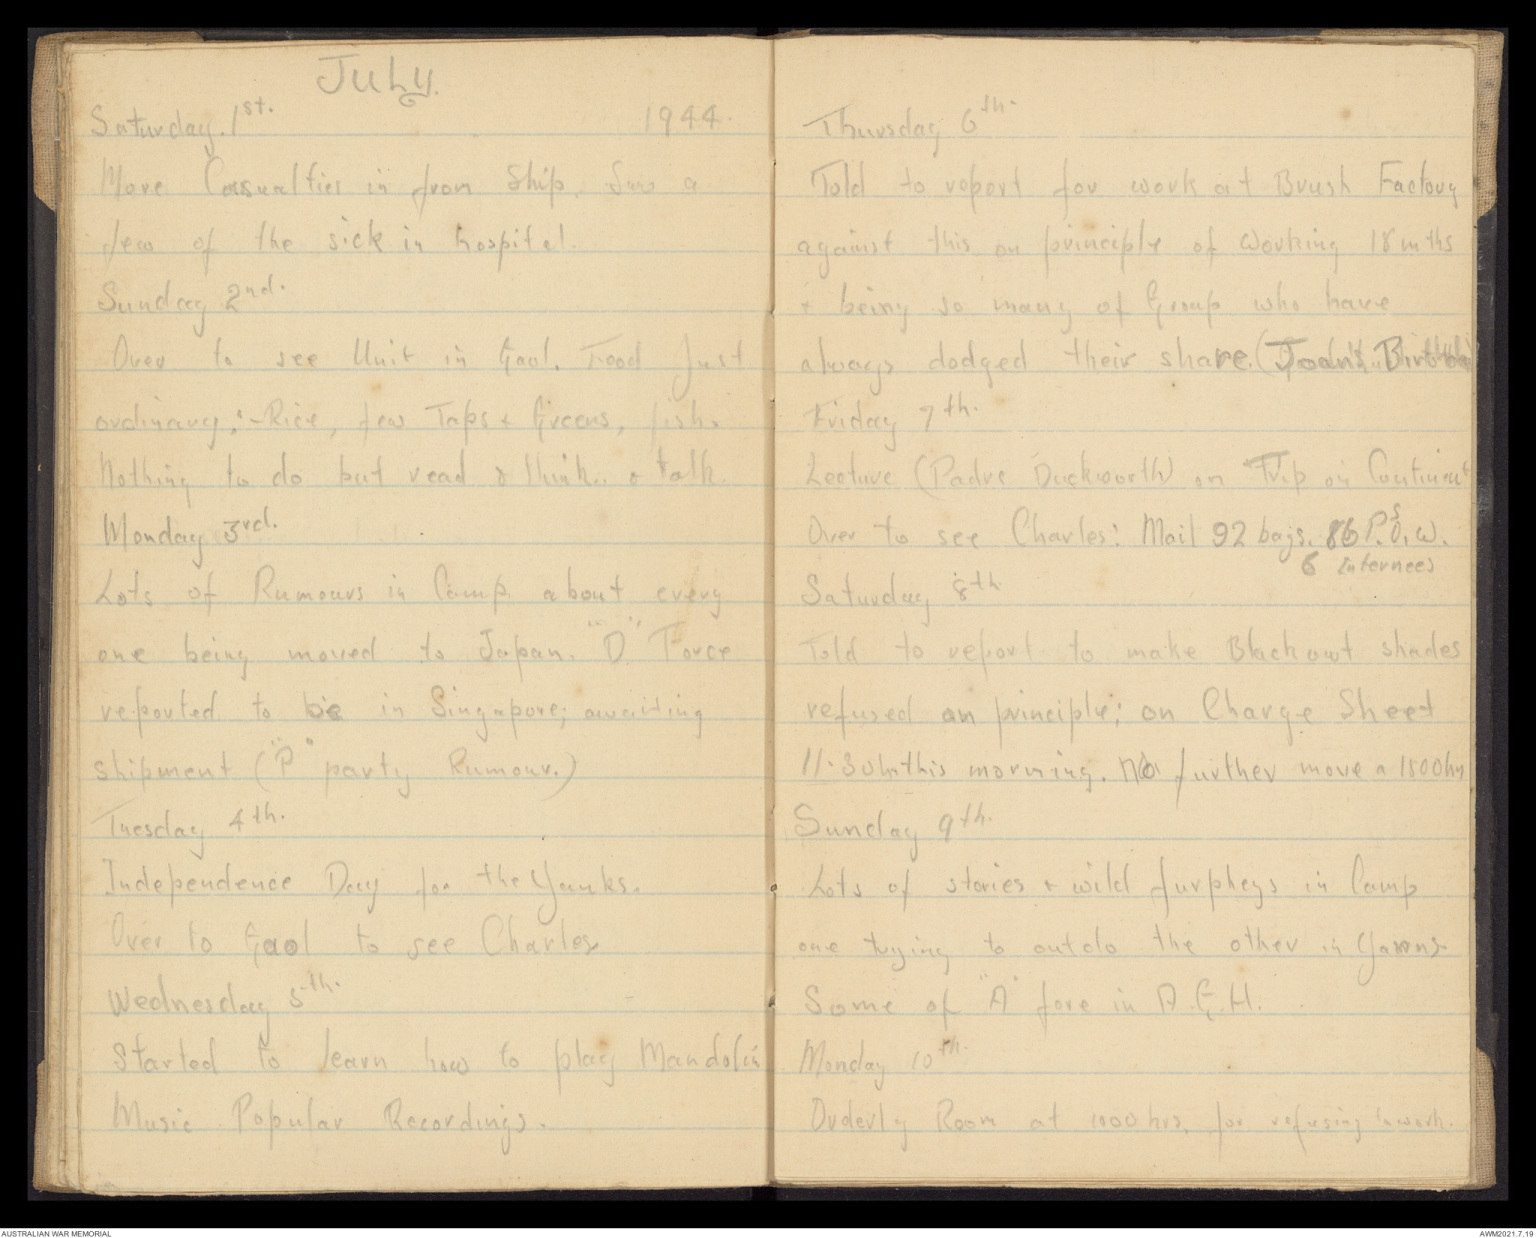 July.
Saturday. 1st. 1944.
More Casualties in from Ship. Saw a
few of the sick in hospital.
Sunday 2nd.
Over to see Unit in Gaol. Food Just
ordinary:- Rice, few Taps & Greens, fish.
Nothing to do but read & think.. & talk.
Monday 3rd.
Lots of Rumours in Camp about every
one being moved to Japan. "D" Force
reported to be in Singapore; awaiting
shipment ("P" party Rumour.)
Tuesday 4th.
Independence Day for the Yanks.
Over to Gaol to see Charles
Wednesday 5th.
Started to learn how to play Mandolin
Music Popular Recordings.
Thursday 6th.
Told to report for work at Brush Factory
against this on principle of working 18 mths
& being so many of Group who have
always dodged their share. (Joan's Birthday)
Friday 7th.
Lecture (Padre Duckworth) on Trip on Continent
Over to see Charles: Mail 92 bags. 86 P.O.W.s
6 Internees
Saturday 8th
Told to report to make Blackout shades
refused on principle; on Charge Sheet
11.30 this morning. No further move a 1500hrs
Sunday 9th.
Lots of stories & wild furpheys in Camp
one trying to outdo the other in Yarns
Some of "A" fore in A.G.H.
Monday 10th.
Orderly Room at 1000 hrs. for refusing to work.
AUSTRALIAN WAR MEMORIAL
AWM2021.7.19